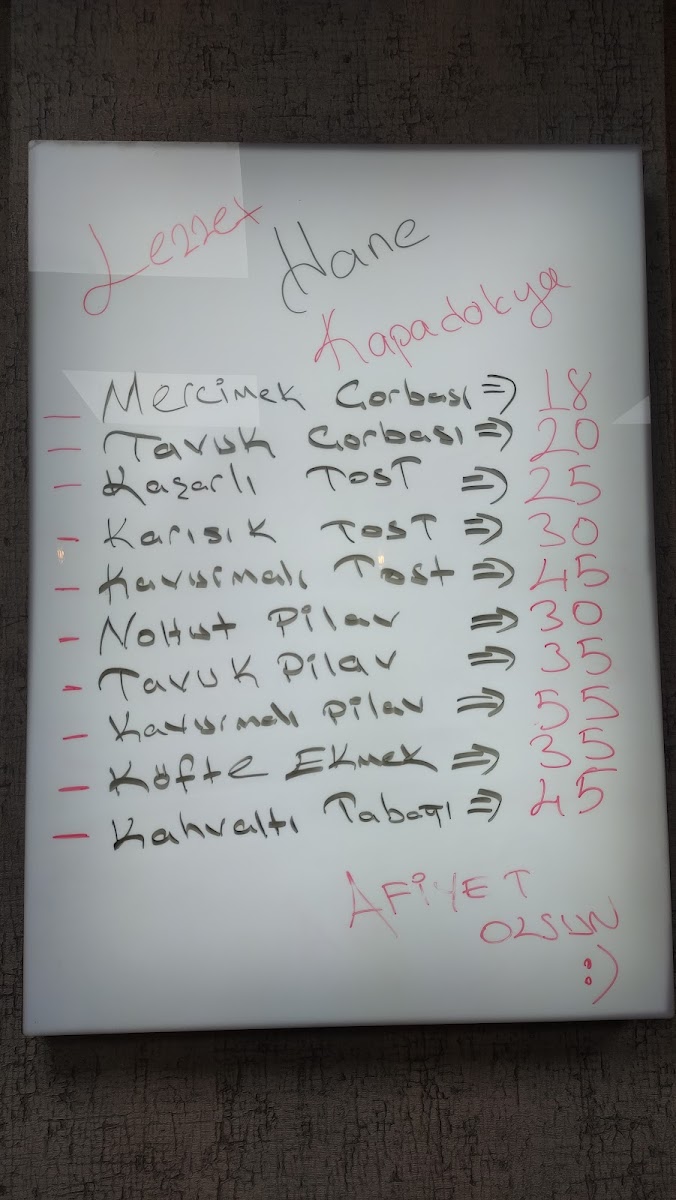 Lezzet Hane
Kapadokya
- Mercimek Çorbası => 18
- Tavuk Çorbası => 20
- Kaşarlı Tost => 25
- Karışık Tost => 30
- Kavurmalı Tost => 45
- Nohut Pilav => 30
- Tavuk Pilav => 35
- Kavurmalı Pilav => 55
- Köfte Ekmek => 35
- Kahvaltı Tabağı => 45
AFİYET
OLSUN
:)